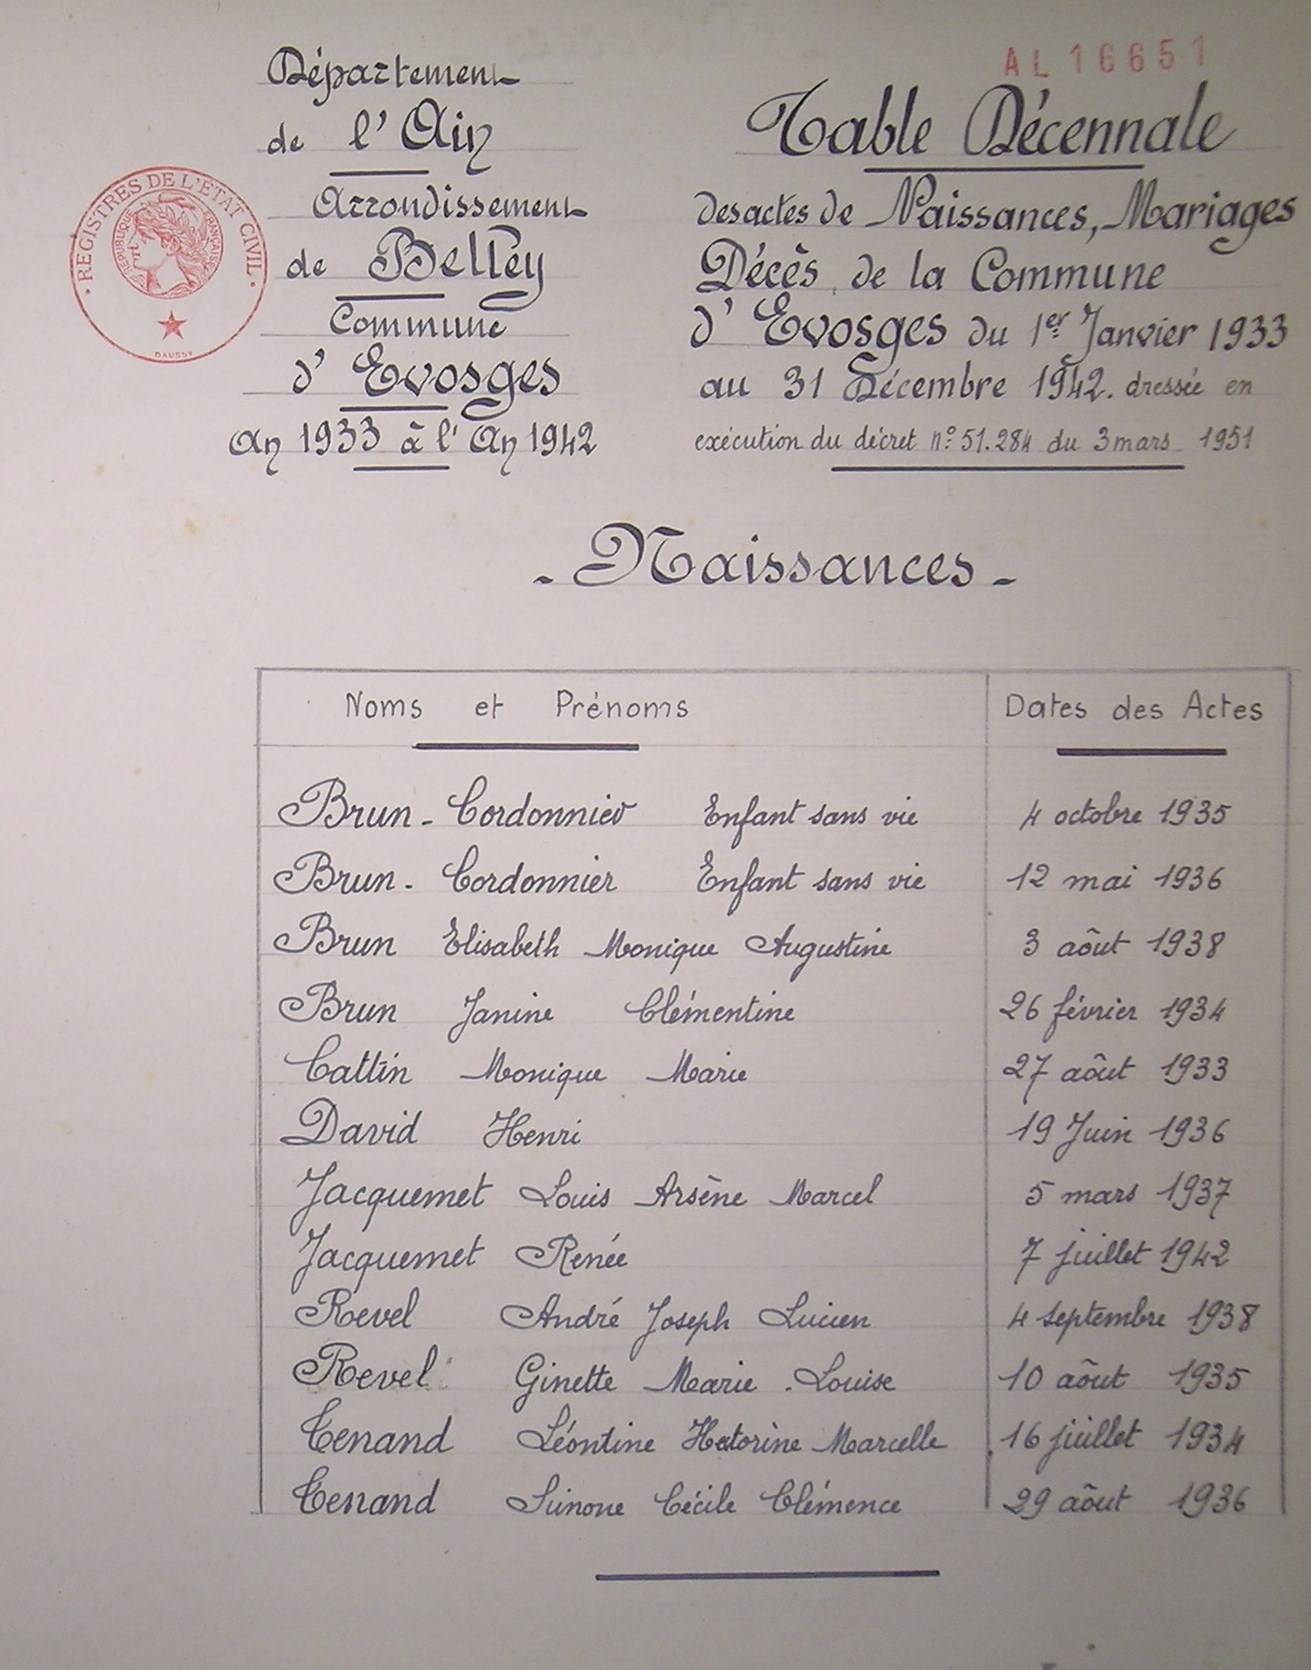 AL 16651
Département
de l'Ain
Arrondissement
de Belley
Commune
d'Evosges
An 1933 à l'An 1942
REGISTRES DE L'ETAT CIVIL
REPUBLIQUE FRANÇAISE
DAUSSY
Table Décennale
des actes de Naissances, Mariages
Décès, de la Commune
d'Evosges du 1er Janvier 1933
au 31 Décembre 1942. dressée en
exécution du décret n° 51.284 du 3 mars 1951
- Naissances -
Noms et Prénoms Dates des Actes
Brun - Cordonnier Enfant sans vie 4 octobre 1935
Brun - Cordonnier Enfant sans vie 12 mai 1936
Brun Elisabeth Monique Augustine 3 aôut 1938
Brun Janine Clémentine 26 février 1934
Cattin Monique Marie 27 aôut 1933
David Henri 19 Juin 1936
Jacquemet Louis Arsène Marcel 5 mars 1937
Jacquemet Renée 7 juillet 1942
Revel André Joseph Lucien 4 septembre 1938
Revel Ginette Marie - Louise 10 aôut 1935
Tenand Léontine Marcelle 16 juillet 1934
Tenand Cécile Clémence 29 aôut 1936